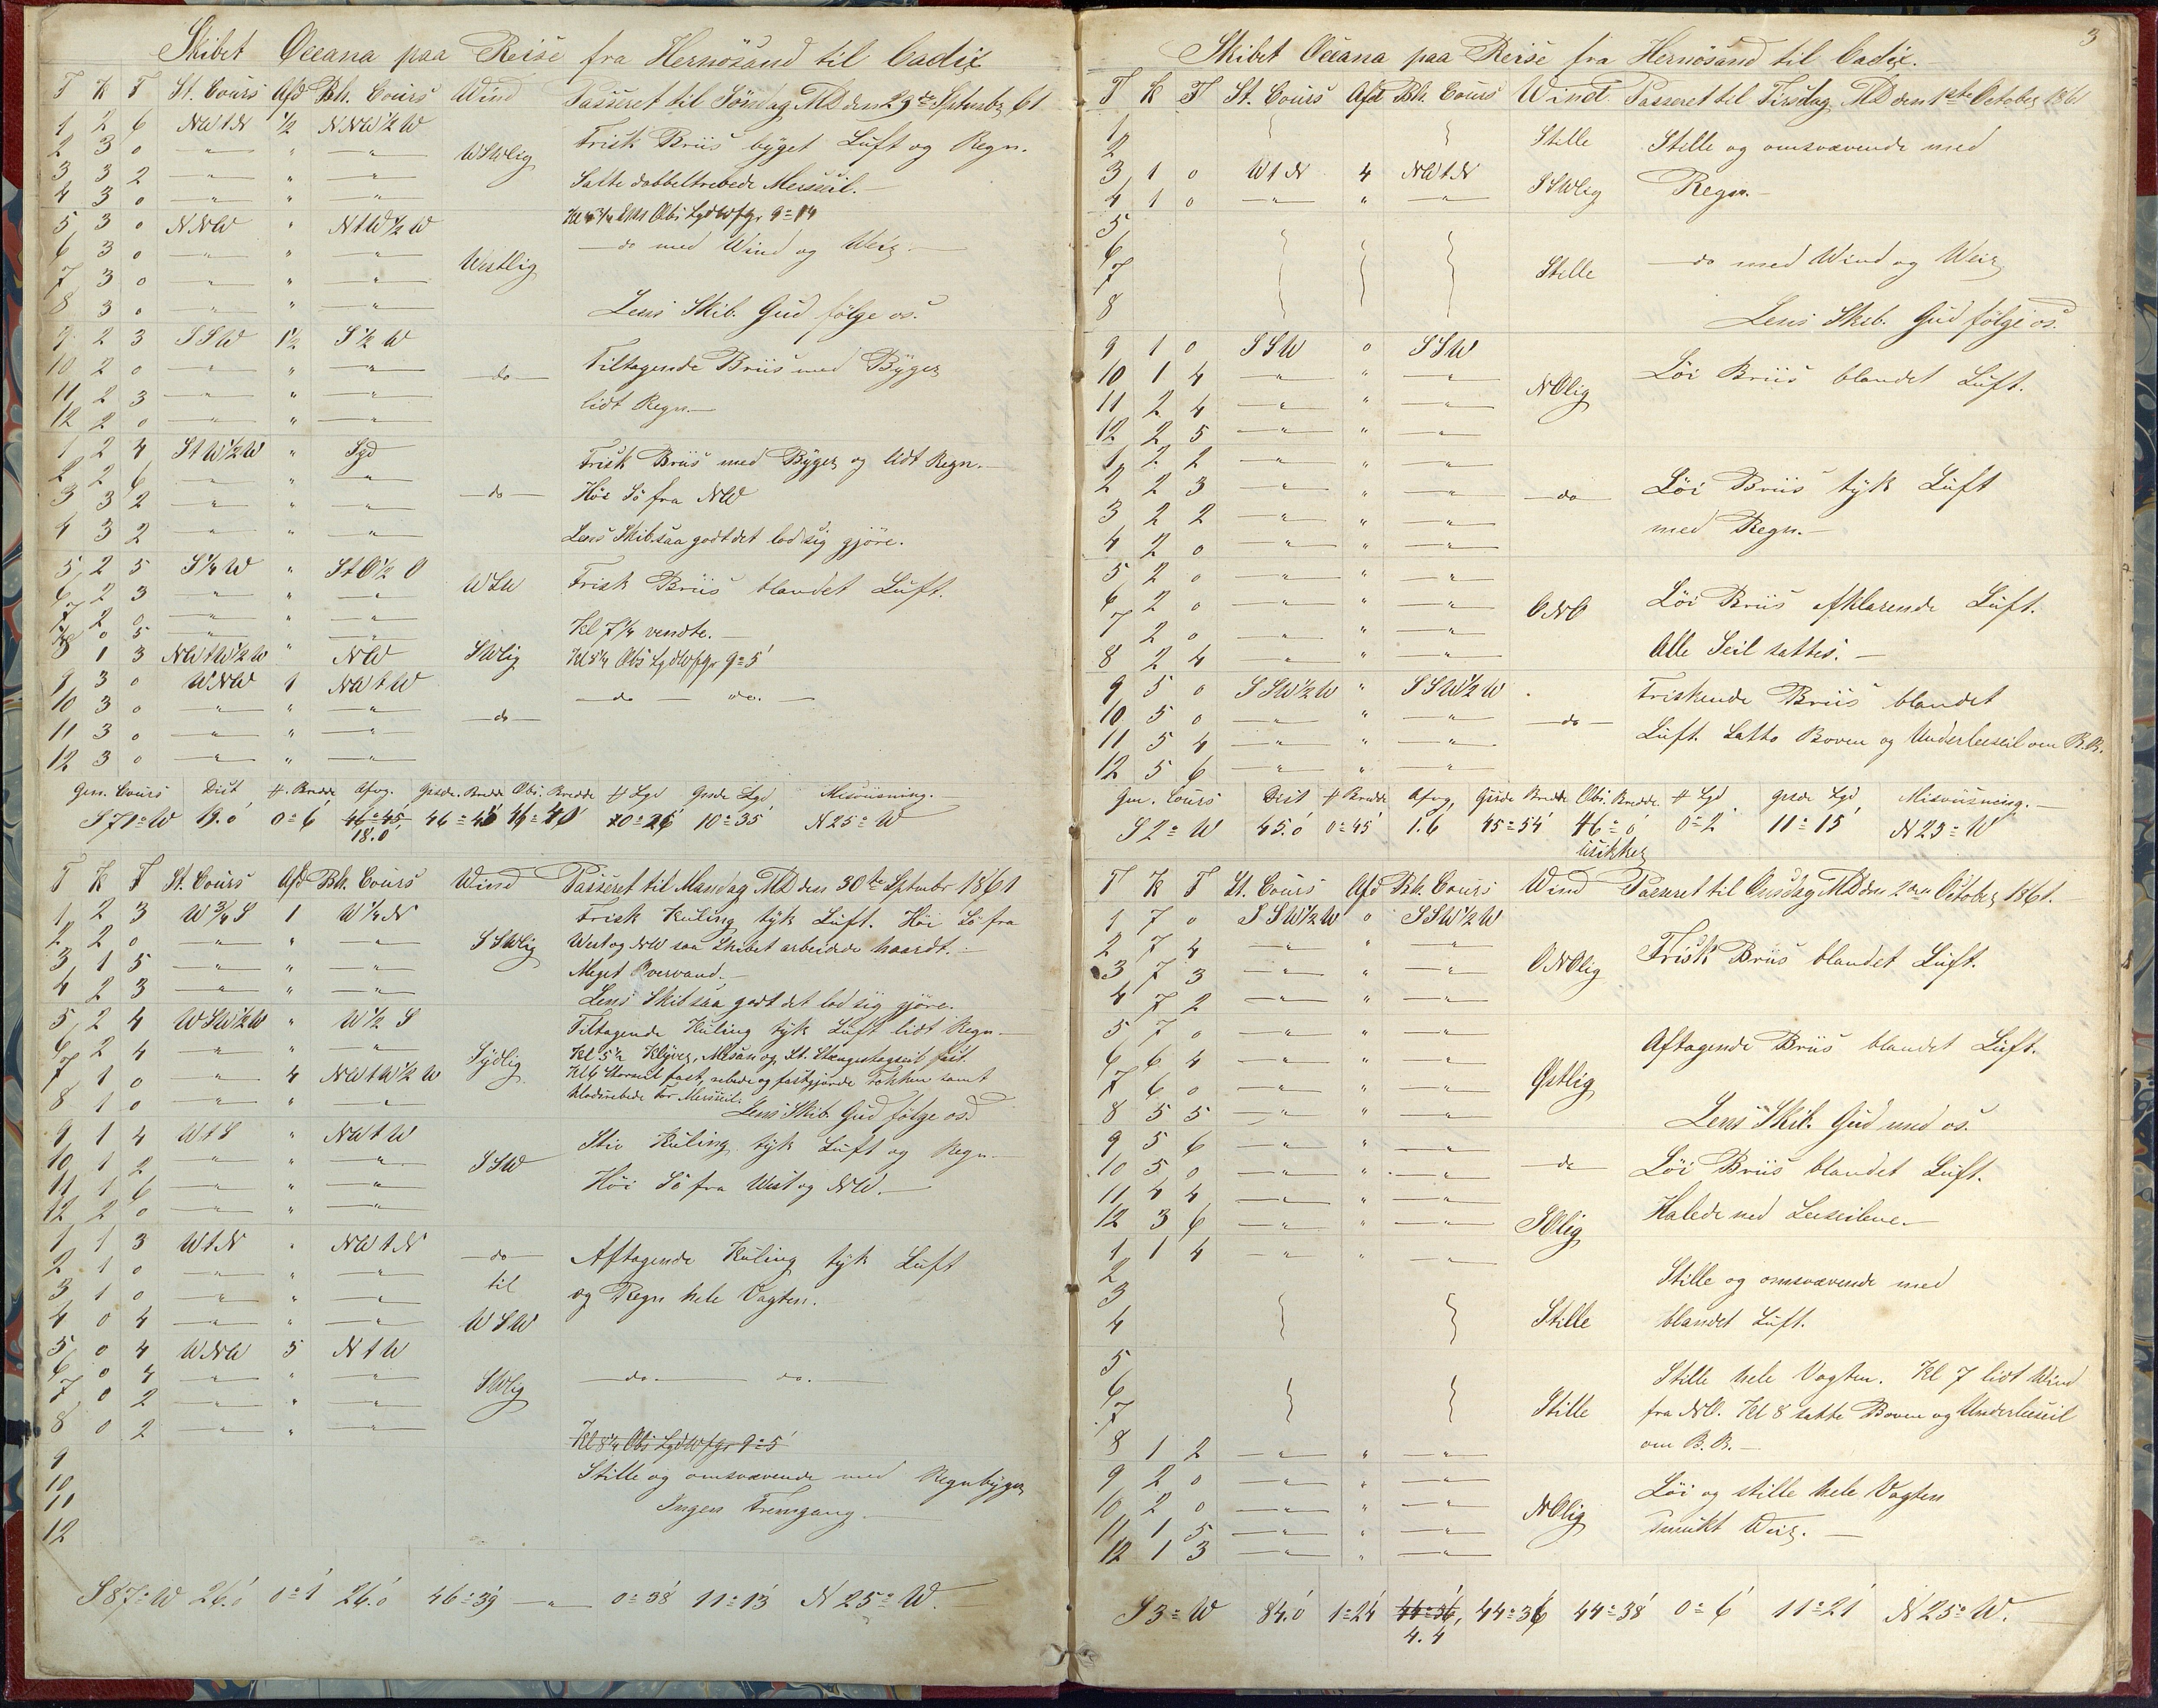 Skibet Oceana paa Reise fra Hernösand til Cadix
T K F St. Cours Afd Bh. Cours Wind Passeret til Söndag MD den 29de Septembr 61
1 2 6 NWtN ½ NNW½W
2 3 0 " " " WSWlig Frisk Briis byget Luft og Regn.
3 3 2 " " " Satte dobbeltrebede Mersseil.
4 3 0 " " "
5 3 0 NNW " NtW½W Obs Lgd W fgr 9=14
6 3 0 " " " do med Wind og Weir.
7 3 0 " " " Westlig
8 3 0 " " " Lens Skib. Gud fölge os.
9 2 3 SSW 1½ S½W
10 2 0 " " " do Tiltagende Briis med Byger
11 2 3 " " " lidt Regn.
12 2 0 " " "
1 2 4 StW½W " Syd
2 2 6 " " " Frisk Briis med Byger og lidt Regn.
3 3 2 " " " do Höi Sö fra NW
4 3 2 " " " Lens Skib saa godt det lod sig gjöre.
5 2 5 S¼W " StO½O WSW Frisk Briis blandet Luft.
6 2 3 " " "
7 2 0 " " " Kl 7¼ vendte.
0 5 " "
8 1 3 NWtW½W " NW SWlig Kl 5¼ Obs Lgd W fgr 9=5'
9 3 0 WNW 1 NWtW do do.
10 3 0 " " " do
11 3 0 " " "
12 3 0 " " "
Gen. Cours Dist #. Brede Afvg. Gisde. Brede Obs. Bredde # Lgd Gisde Lgd Misviisning.
S71=W 19.0 0=6 46=45 46=40 46=40 0=26 10=35 N25=W
18.0
T K F St. Cours Afd Bh. Cours Wind Passeret til Mandag MD den 30te Septmbr 1861
1 2 3 W¾S 1 W¼N Frisk Kuling tyk Luft. Höi Sö fra
2 2 0 " " " SSWlig West og NW saa Skibet arbeidede haardt.
3 1 5 " " " Meget Overvand.
4 2 3 " " " Lens Skib saa godt det lod sig gjöre.
5 2 4 WSW½W " W½S Tiltagende Kuling tyk Luft lidt Regn
6 2 4 " " " Sydlig Kl 5½ Klyver, Mesan og St. Stængestagseil fast
7 1 0 " 4 NWtW½W Kl 6 Storseil fast, rebede og fastgjorde Fokken samt
8 1 0 " " " klodsrebede For Mersseil.
Lens Skib. Gud fölge os.
9 1 4 WtS " NWtW Stiv Kuling tyk Luft og Regn
10 1 2 " " " SSW
11 1 6 " " " Höi Sö fra West og NW.
12 2 0 " " "
1 1 3 WtN " NWtN do Aftagende Kuling tyk Luft
2 1 0 " " " til
3 1 0 " " " og Regn hele Vagten.
4 0 4 " " " WSW
5 0 4 WNW 5 NtW
6 0 4 " " " SWlig do do.
7 0 2 " " "
8 0 2 " " " Kl 8¼ Obs Lgd W fgr 9=5'
9 Stille og omsvævende med Regnbyger
10
11 Ingen Fremgang
12
S87=W 26.0 0=1 26.0 46=39 " 0=38 11=13 N25=W.
3
Skibet Oceana paa Reise fra Hernösand til Cadix.
T K F St. Cours Afd Bh. Cours Wind Passeret til Tirsdag MD den 1ste October 1861
1 Stille Stille og omsvævende med
2
3 1 0 WtN 4 NWtN SSWlig Regn.
4 1 0 " " "
5
6 do med Wind og Weir
7 Stille
8 Lens Skib. Gud fölge os.
9 1 0 SSW 0 SSW
10 1 4 " " " NOlig Löi Briis blandet Luft.
11 2 4 " " "
12 2 5 " " "
1 2 2 " " "
2 2 3 " " " do Löi Briis tyk Luft
3 2 2 " " " med Regn.
4 2 0 " " "
5 2 0 " " "
6 2 0 " " " ONO Löi Briis afklarende Luft.
7 2 0 " " "
8 2 4 " " " Alle Seil sattes.
9 5 0 SSW½W " SSW½W Friskende Briis blandet
10 5 0 " " " do
11 5 4 " " " Luft. Satte Boven og Underleeseil om B.B.
12 5 6 " " "
Gen. Cours Dist # Bredde Afvg, Gisde Bredde Obs. Bredde. # Lgd Gisde Lgd, Misviisning.
S2=W 45.0 0=45 1.6 45=54' 46=0' 0=2' 11=15 N23=W
usikker
T K F St. Cours Afd Bh. Cours Wind Passeret til Onsdag MD den 2den October 1861.
1 7 0 SSW½W 0 SSW½W
2 7 4 " " " ONOlig Frisk Briis blandet Luft.
3 7 3 " " "
4 7 2 " " "
5 7 0 " " " Aftagende Briis blandet Luft.
6 6 4 " " "
7 6 0 " " " Østlig
8 5 5 " " " Lens Skib. Gud med os.
9 5 6 " " " do
10 5 0 " " " Löi Briis blandet Luft.
11 4 4 " " "
12 3 6 " " " SOlig Halede ned Leeseilene.
1 1 4 " " "
2 Stille og omsvævende med
3
4 Stille blandet Luft.
5 Stille hele Vagten. Kl 7 lidt Wind
6
7 Stille fra NO. Kl 8 satte Boven og Underleeseil
8 1 2 " " " om B.B.
9 2 0 " " " Löi og stille hele Vagten
10 2 0 " " " NOlig
11 1 5 " " " smukt Weir.
12 1 3 " " "
S3=W 84.0 1=24' 44=36, 44=36 44=38' 0=6' 11=21 N25=W.
4.4